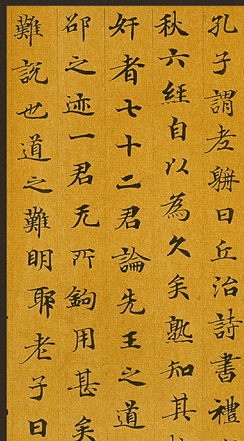 孔子謂老聃曰丘治詩書禮
秋六經自以為久矣孰知其
奸者七十二君論先王之道
邵之迹一君无所鉤用甚矣
難説也道之難明耶老子曰